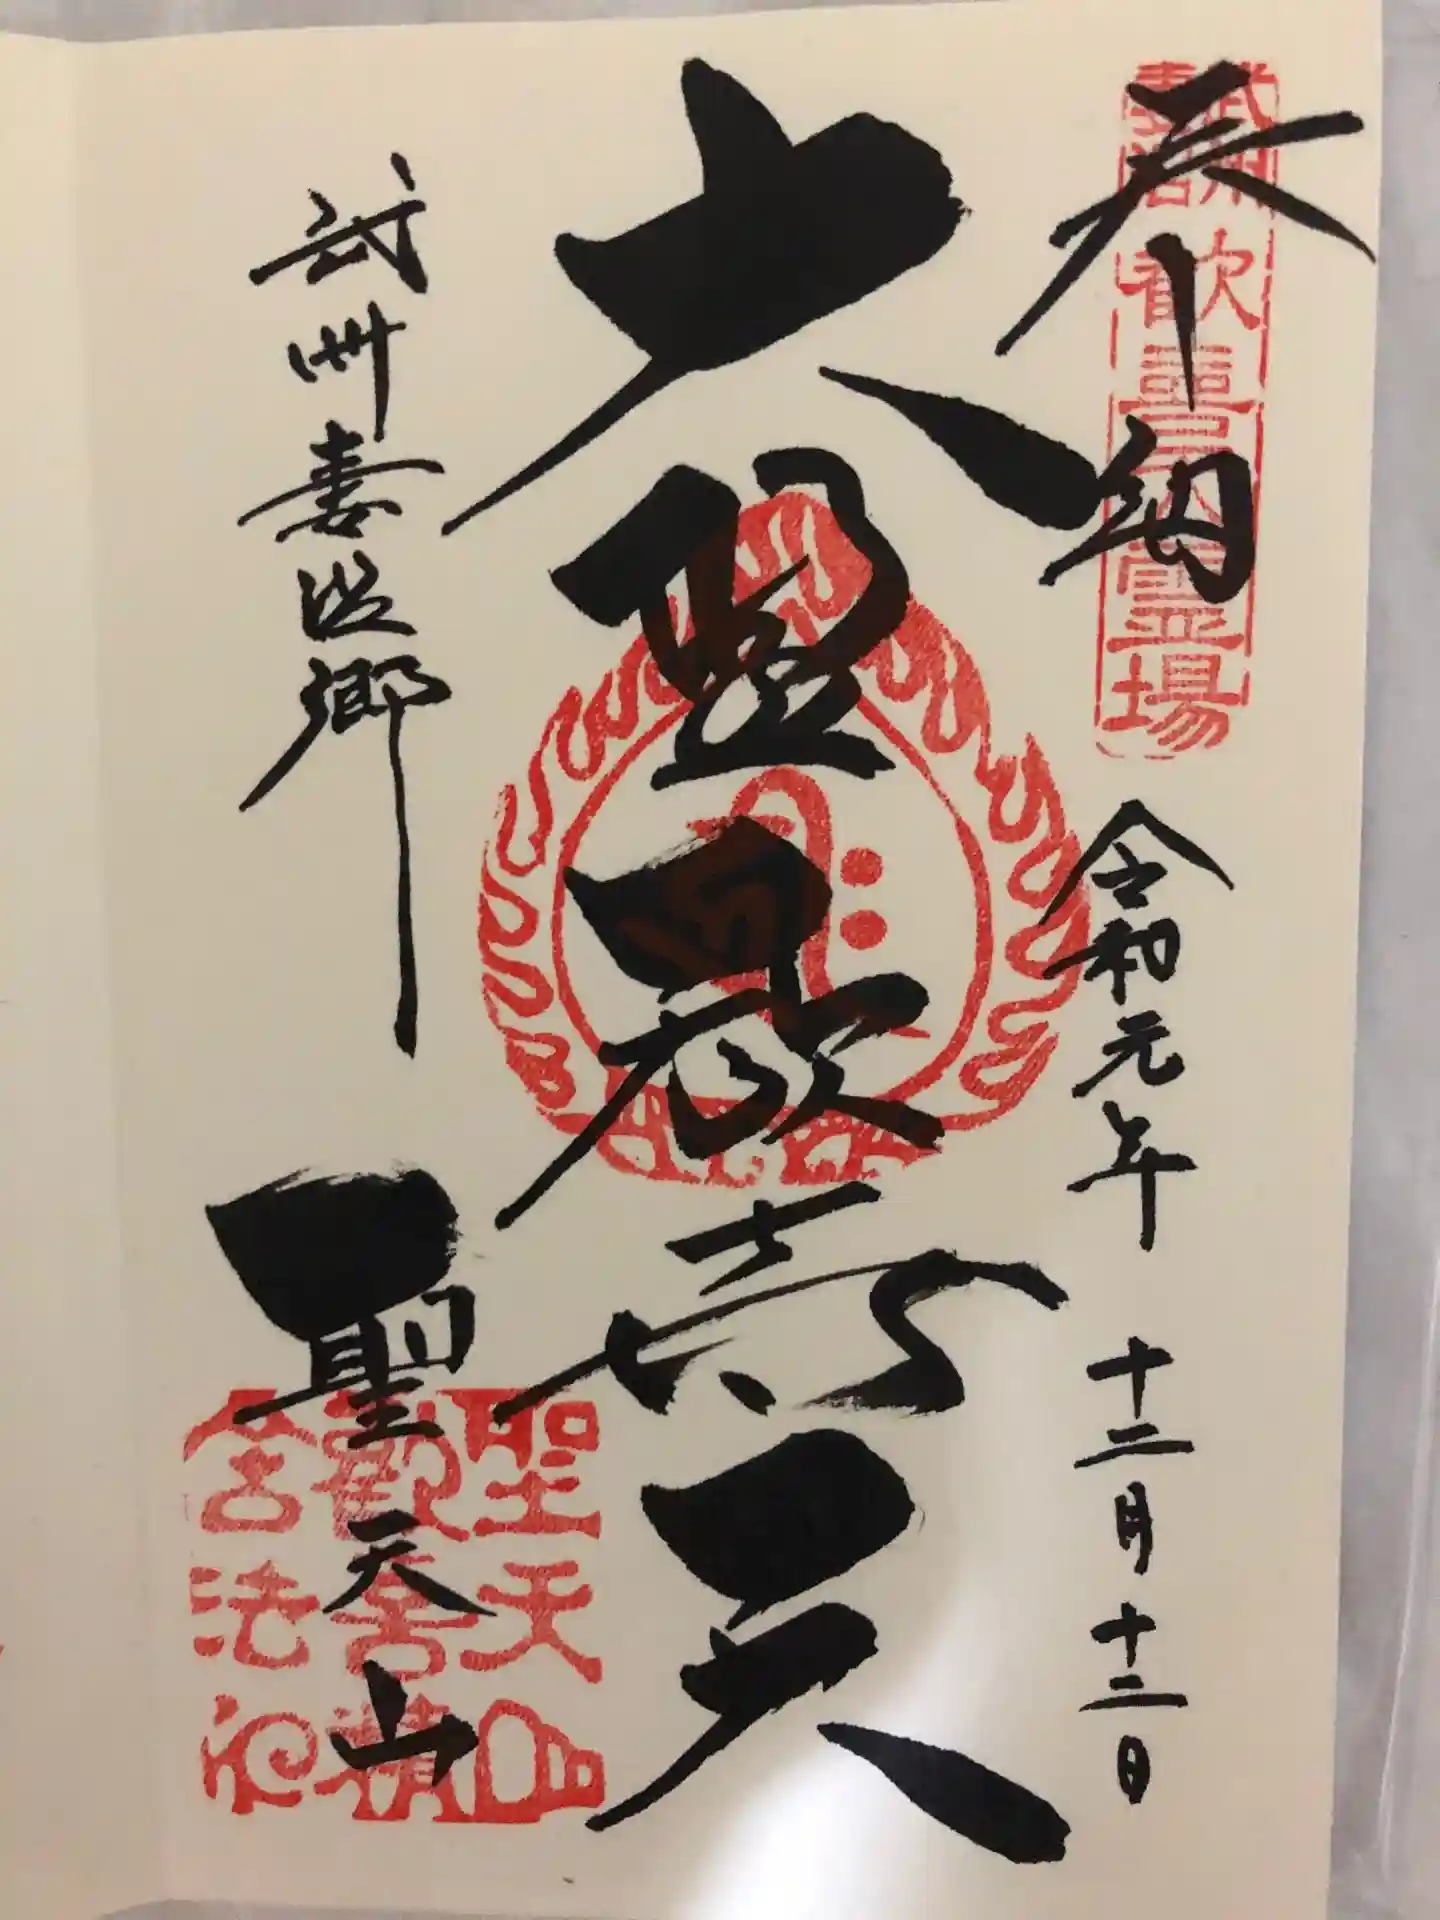 奉納
武州
妻沼
歓喜天霊場
令和元年 十二月十二日
大聖歓喜天
武州妻沼郷
聖天山
聖天山
歓喜